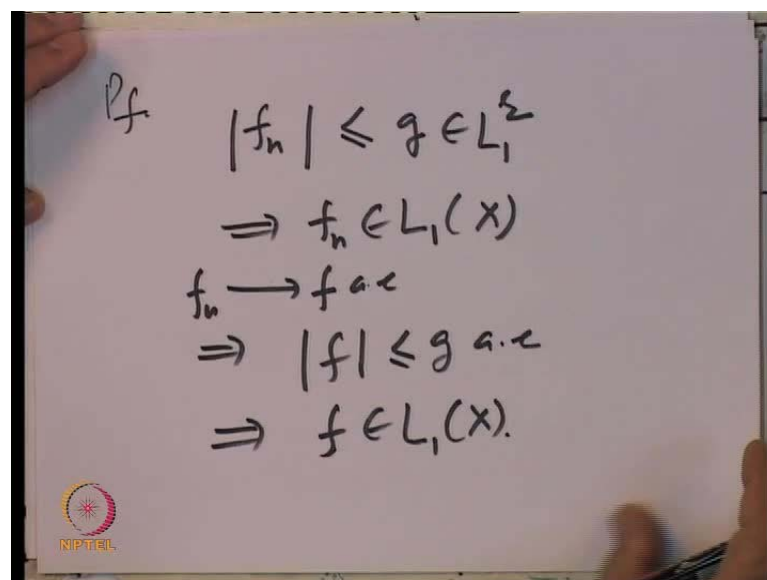 Pf.
|fₙ| ≤ g ∈ L₁ʳ
⇒ fₙ ∈ L₁(X)
fₙ ⟶ f a.e
⇒ |f| ≤ g a.e
⇒ f ∈ L₁(X).
NPTEL